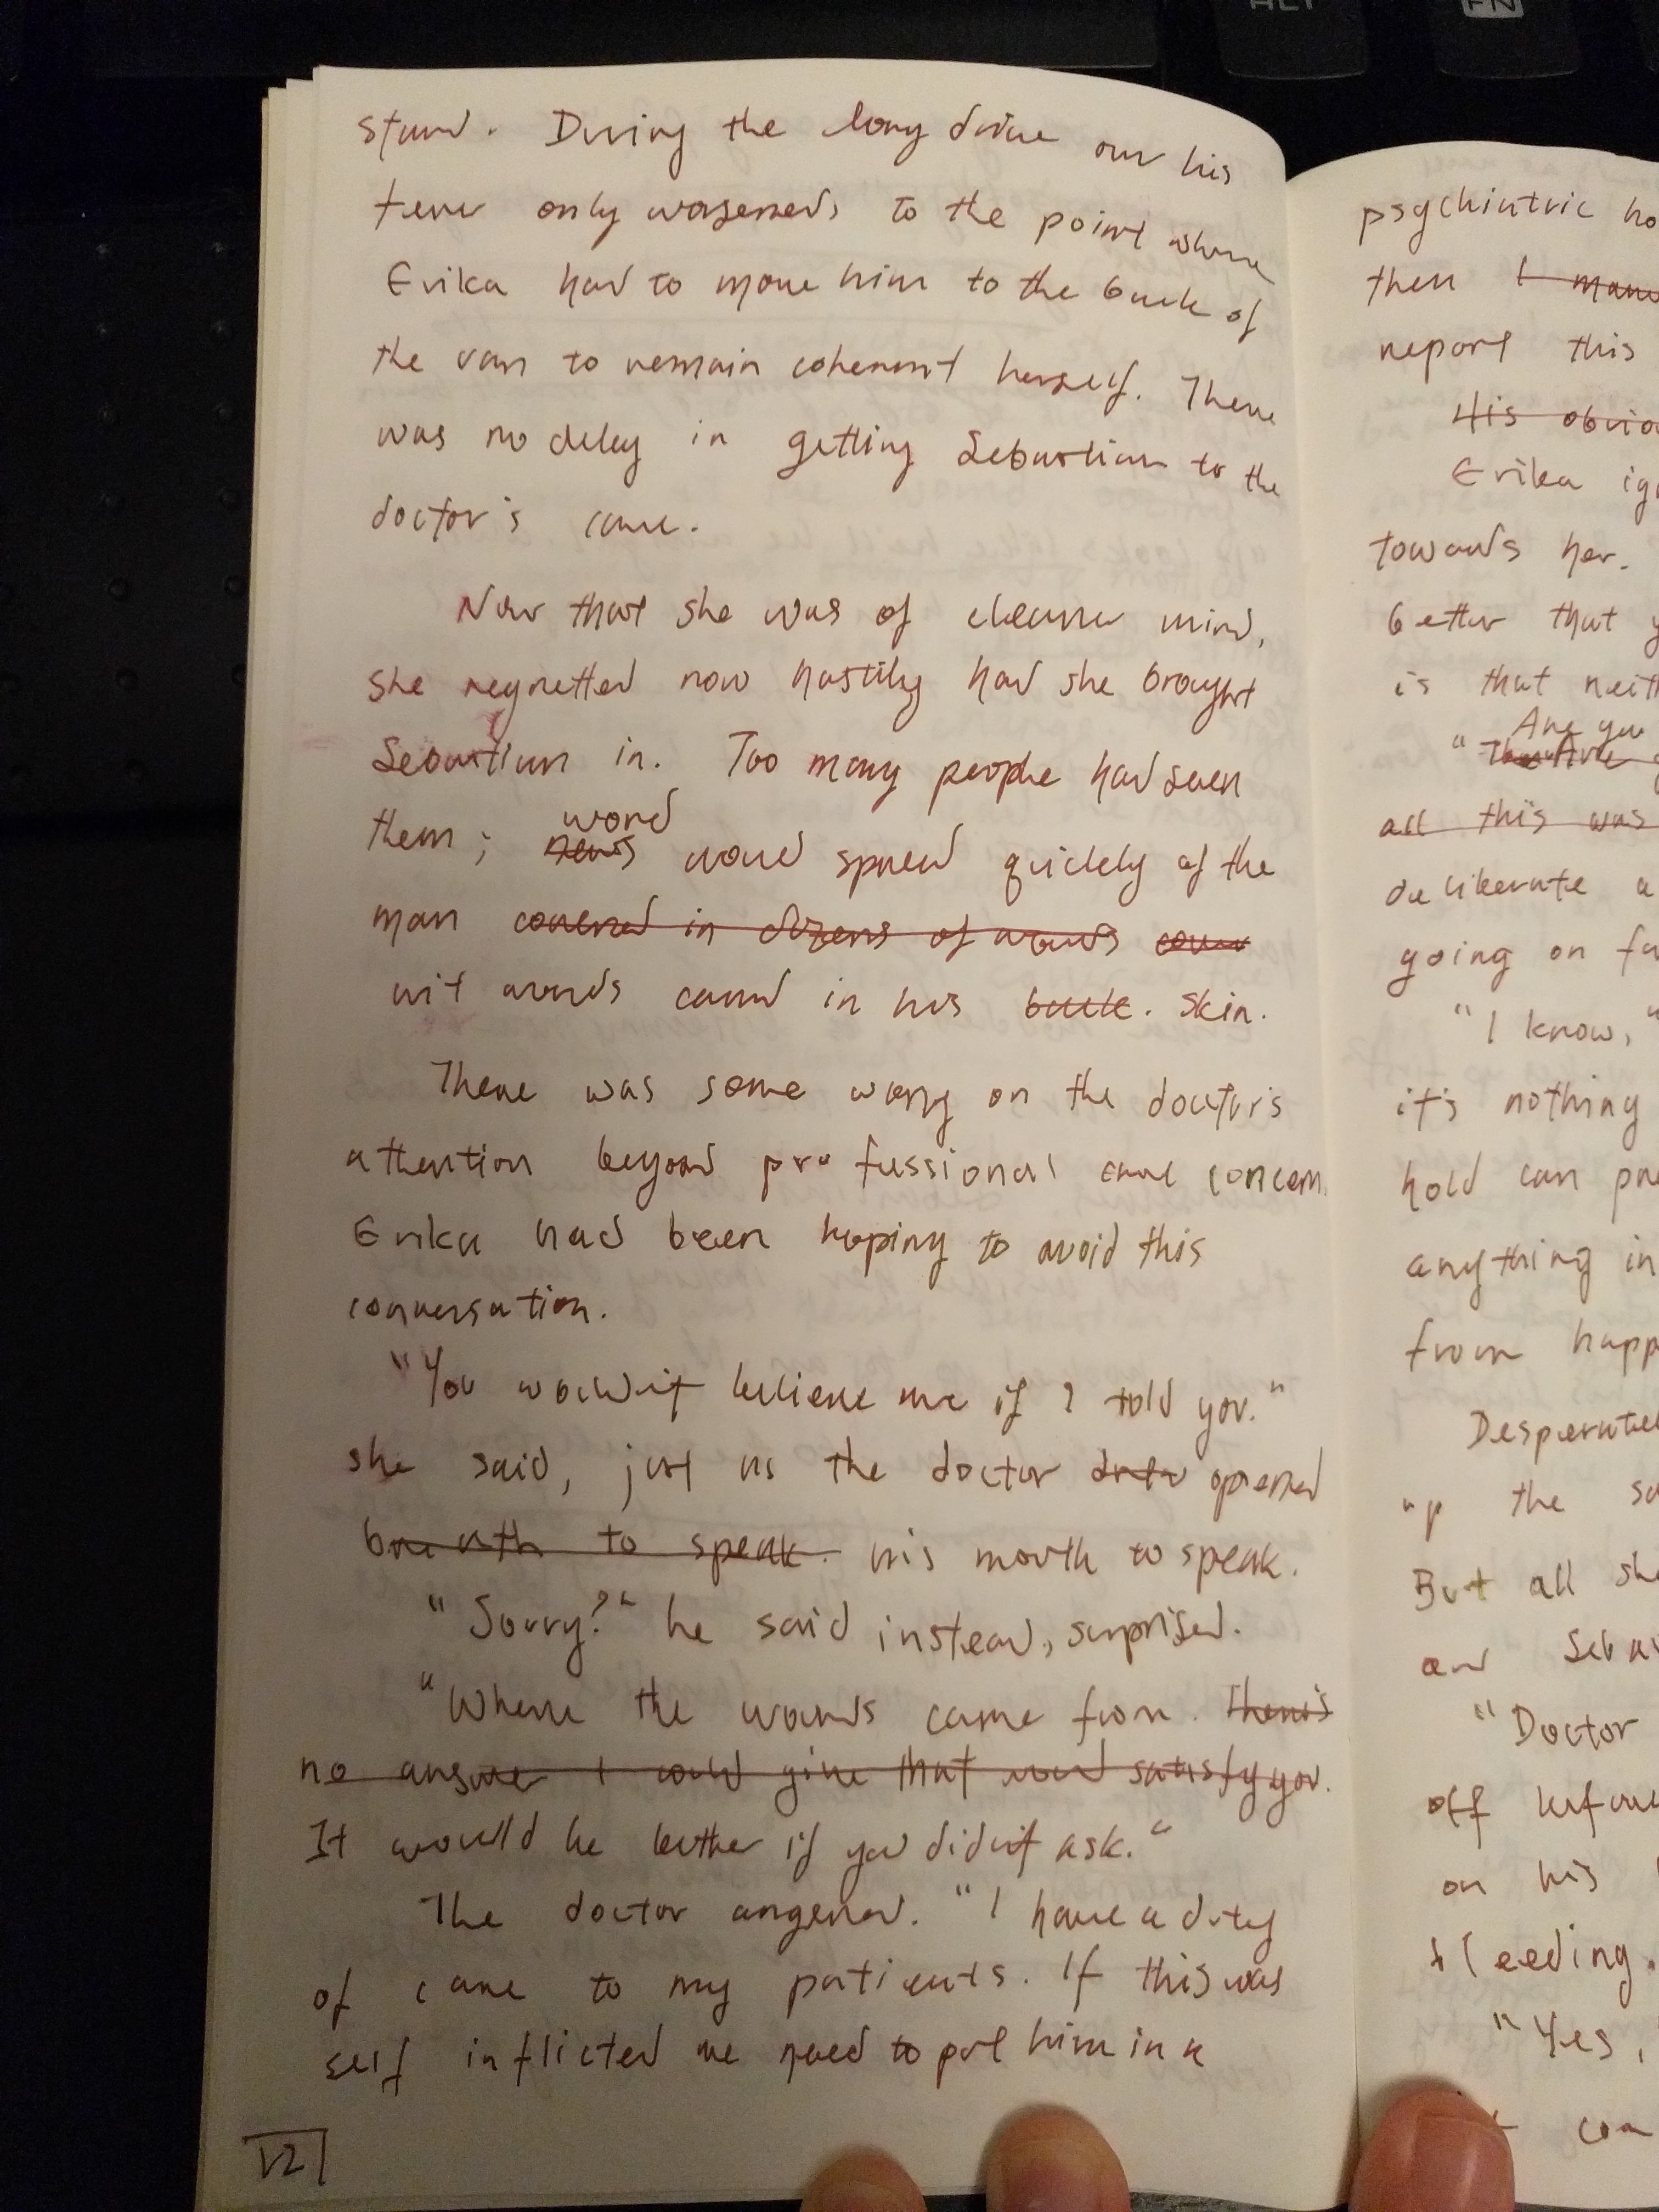 stand. During the long drive over his
fever only worsened, to the point where
Erika had to move him to the back of
the van to remain coherent herself. There
was no delay in getting Sebastian to the
doctor's care.
Now that she was of clearer mind,
she regretted how hastily had she brought
Sebastian in. Too many people had seen
word
them; news would spread quickly of the
man covered in dozens of words
wit words carved in his back. skin.
There was some worry on the doctor's
attention beyond professional care concern.
Erika had been hoping to avoid this
conversation.
"You wouldn't believe me if I told you."
she said, just as the doctor drew opened
breath to speak. his mouth to speak.
"Sorry?" he said instead, surprised.
"Where the words came from. There's
no answer I could give that would satisfy you.
It would be better if you didn't ask."
The doctor angered. "I have a duty
of care to my patients. If this was
self inflicted we need to put him in a
12
psychiatric
then I
report this
His
Erika
towards her.
better that
is that
Are you
"
all this was
deliberate a
going on
"I know,"
it's nothing
hold can
anything in
from
up the
But all
"Doctor
off
on his
bleeding.
"Yes,